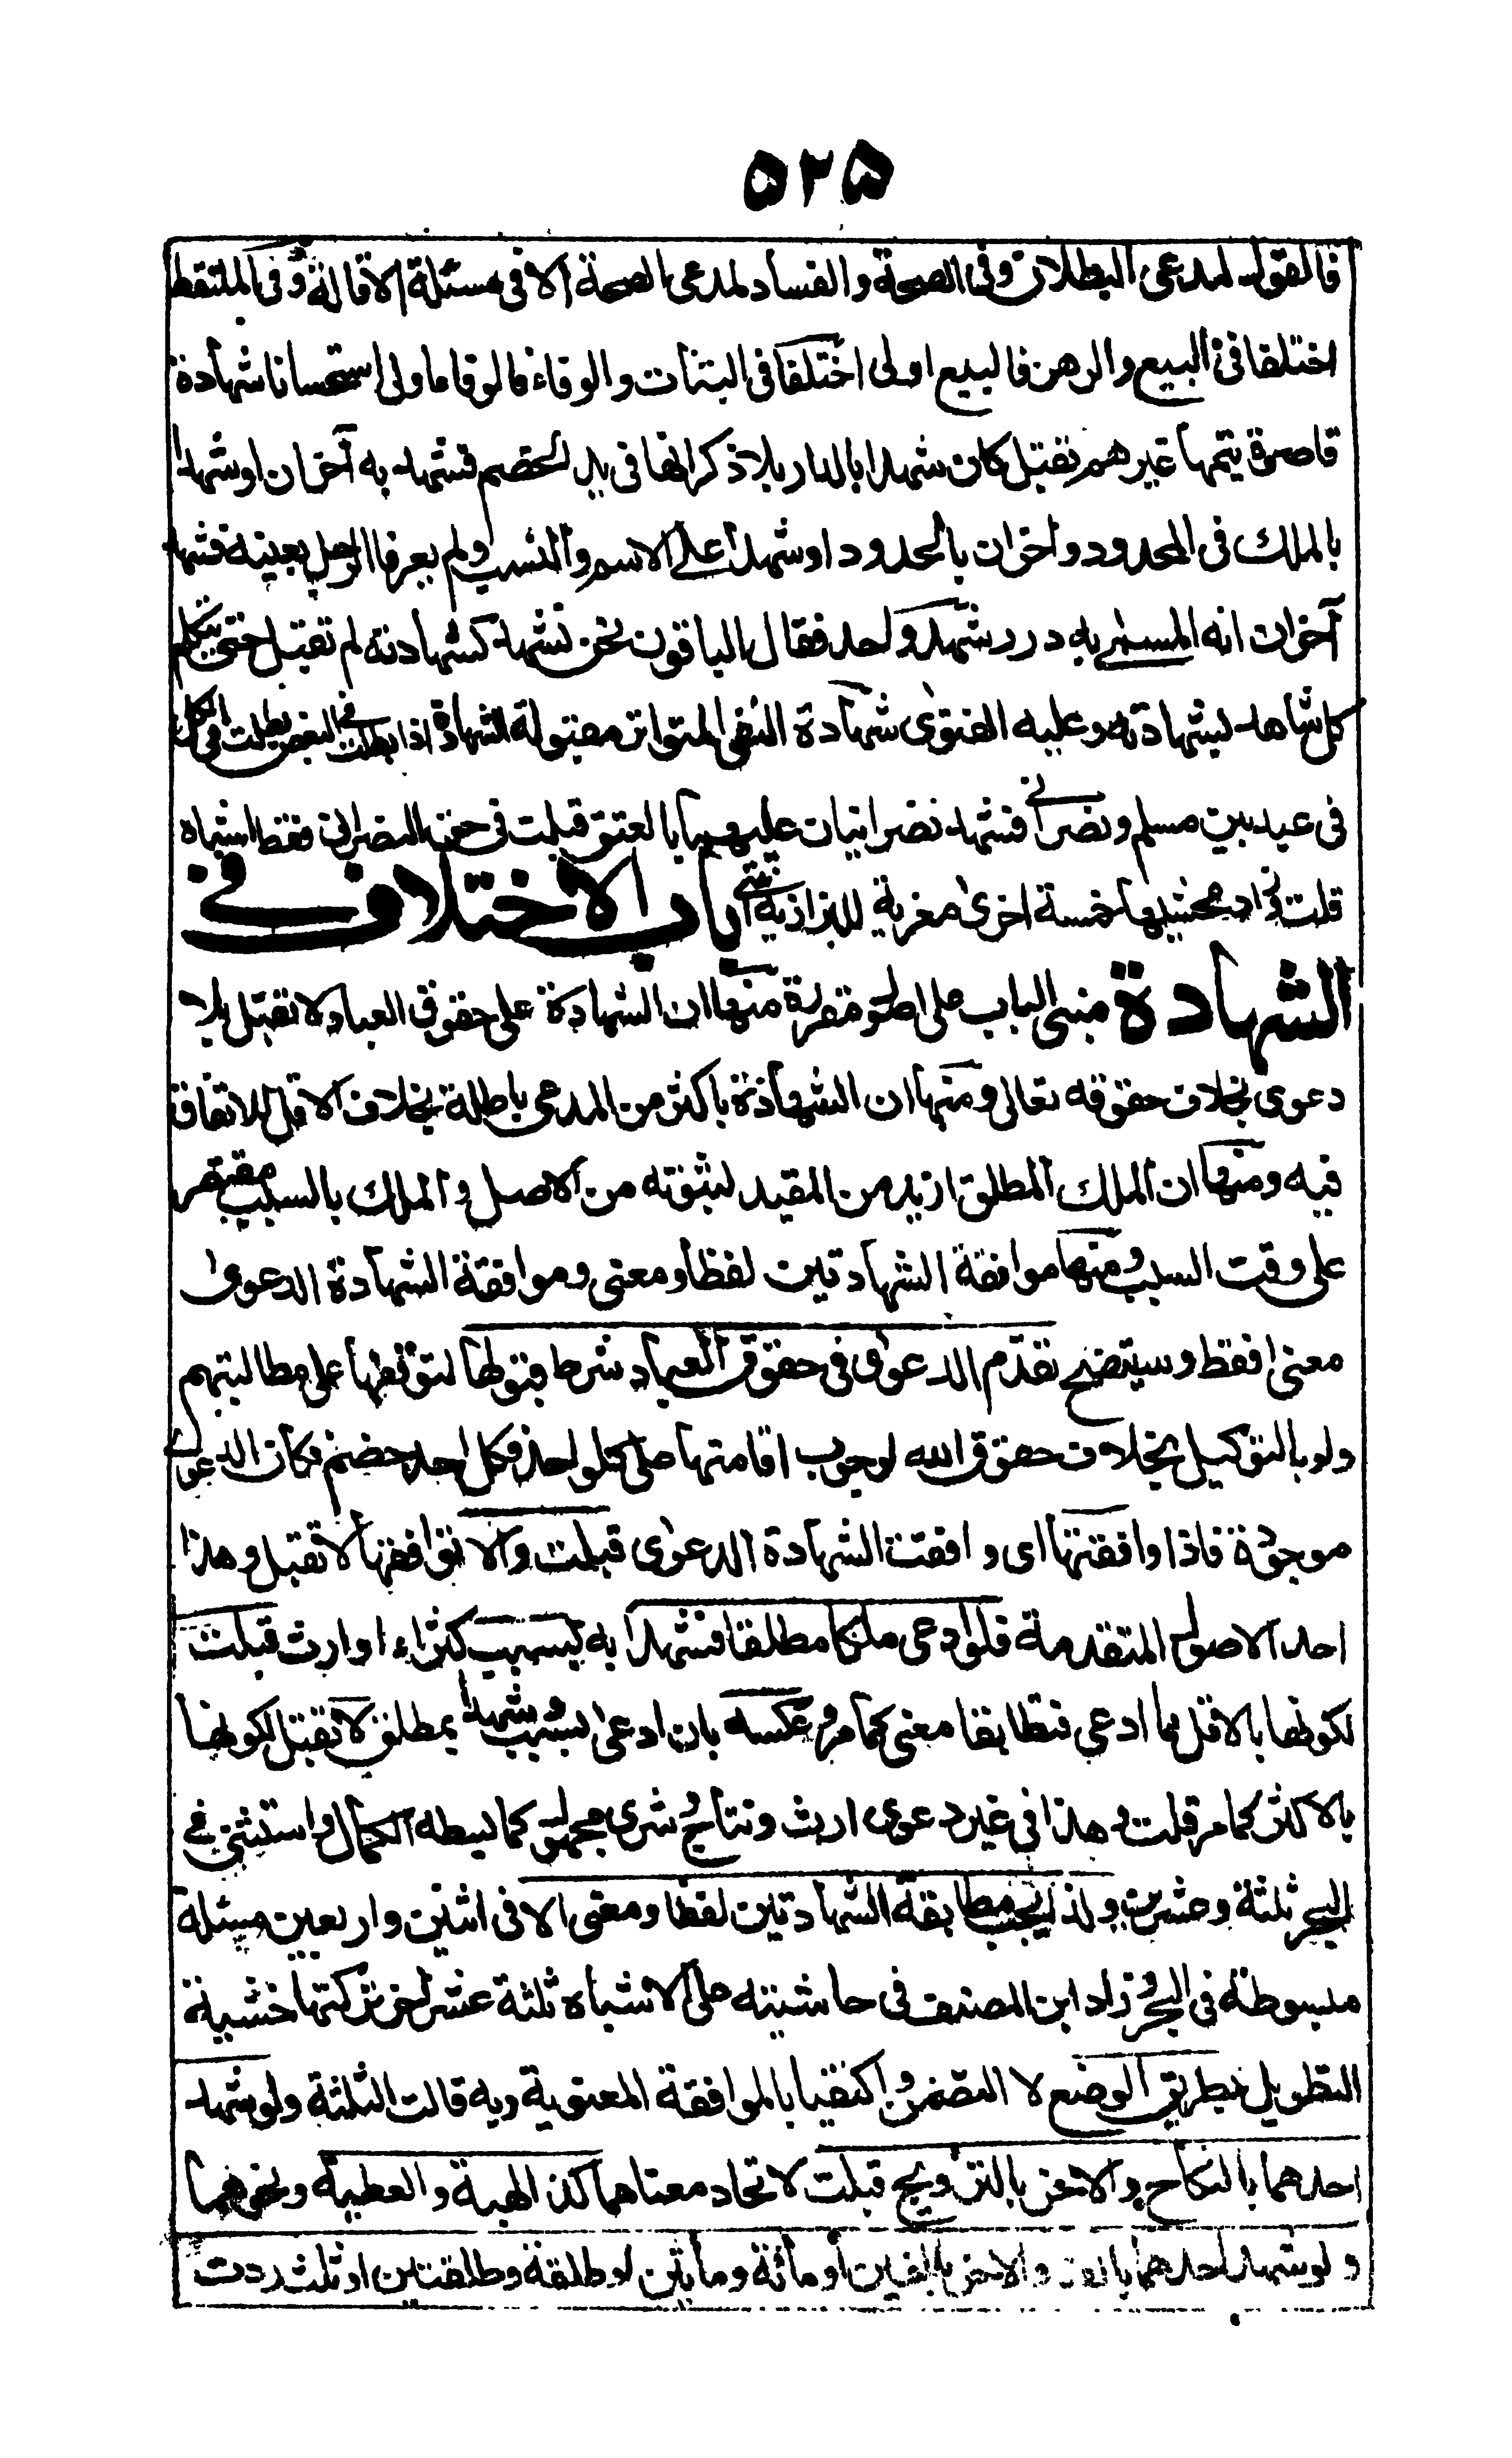 ٥٢٥
فالقول لمدعى البطلان وفى الصحة والفساد لمدعى الصحة الا فى مسئلة الاقالة وفى الملتقط
اختلفا فى البيع والرهن فالبيع اولى اختلفا فى البتات والوفاء فالوفاء اولى استحسانا شهادة
قاصرة يتمها غيرهم تقبل كان شهدا بالدار بلا ذكر انها فى يد الخصم فشهد به آخران او شهدا
بالملك فى المحدود واخران بالحدود او شهدا على الاسم والنسب ولم يعرفا الرجل بعينه فشهد
آخران انه المسمى به درر شهد واحد فقال الباقون نحن نشهد كشهادته لم تقبل حتى يتكلم
كل شاهد بشهادته وعليه الفتوى شهادة النفى المتواتر مقبولة الشهادة اذا بطلت فى البعض بطلت فى الكل
فى عبد بين مسلم ونصرانى فشهد نصرانيان عليهما بالعتق قبلت فى حق النصرانى فقط اشباه
قلت وزاد محشيها خمسة اخرى معزية للبزازية انتهى باب الاختلاف فى
الشهادة مبنى الباب على اصول مقررة منها ان الشهادة على حقوق العباد لا تقبل بلا
دعوى بخلاف حقوقه تعالى ومنها ان الشهادة باكثر من المدعى باطلة بخلاف الاقل للاتفاق
فيه ومنها ان الملك المطلق ازيد من المقيد لثبوته من الاصل والملك بالسبب مقتصر
على وقت السبب ومنها موافقة الشهادتين لفظا ومعنى وموافقة الشهادة الدعوى
معنى فقط وسيتضح تقدم الدعوى فى حقوق العباد شرط قبولها لتوقفها على مطالبتهم
ولو بالتوكيل بخلاف حقوق الله لوجوب اقامتها على كل واحد فكل احد خصم فكان الدعوى
موجودة فاذا وافقتها اى وافقت الشهادة الدعوى قبلت والا توافقها لا تقبل وهذا
احد الاصول المتقدمة فلو ادعى ملكا مطلقا فشهدا به بسبب كشراء او ارث قبلت
لكونها بالاقل مما ادعى فتطابقا معنى كما مر وعكسه بان ادعى بسبب وشهدا بمطلق لا تقبل لكونها
بالاكثر كما مر قلت وهذا فى غير دعوى ارث ونتاج وشرى مجهول كما بسطه الكمال واستثنى فى
البحر ثلثة وعشرين وكذا يجب مطابقة الشهادتين لفظا ومعنى الا فى اثنين واربعين مسئلة
مبسوطة فى البحر وزاد ابن المصنف فى حاشيته على الاشباه ثلثة عشر اخر تركتها خشية
التطويل بطريق الوضع لا التضمن واكتفيا بالموافقة المعنوية وبه قالت الثلثة ولو شهد
احدهما بالنكاح والاخر بالتزويج قبلت لاتحاد معناهما كذا الهبة والعطية ونحوهما
ولو شهد احدهما بالف والاخر بالفين او مائة ومائتين او طلقة وطلقتين او ثلث ردت